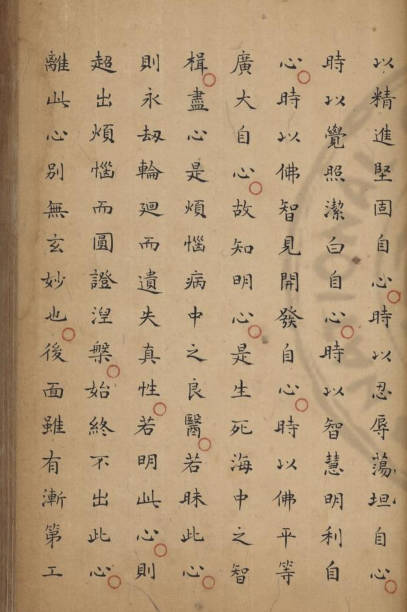 以精進堅固自心時以忍辱蕩坦自心
時以覺照潔白自心時以智慧明利自
心時以佛智見開發自心時以佛平等
廣大自心故知明心是生死海中之智
楫盡心是煩惱病中之良醫若昧此心
則永刼輪廻而遺失真性若明此心則
超出煩惱而圓證湼槃始終不出此心
離此心別無玄妙也後面雖有漸第工